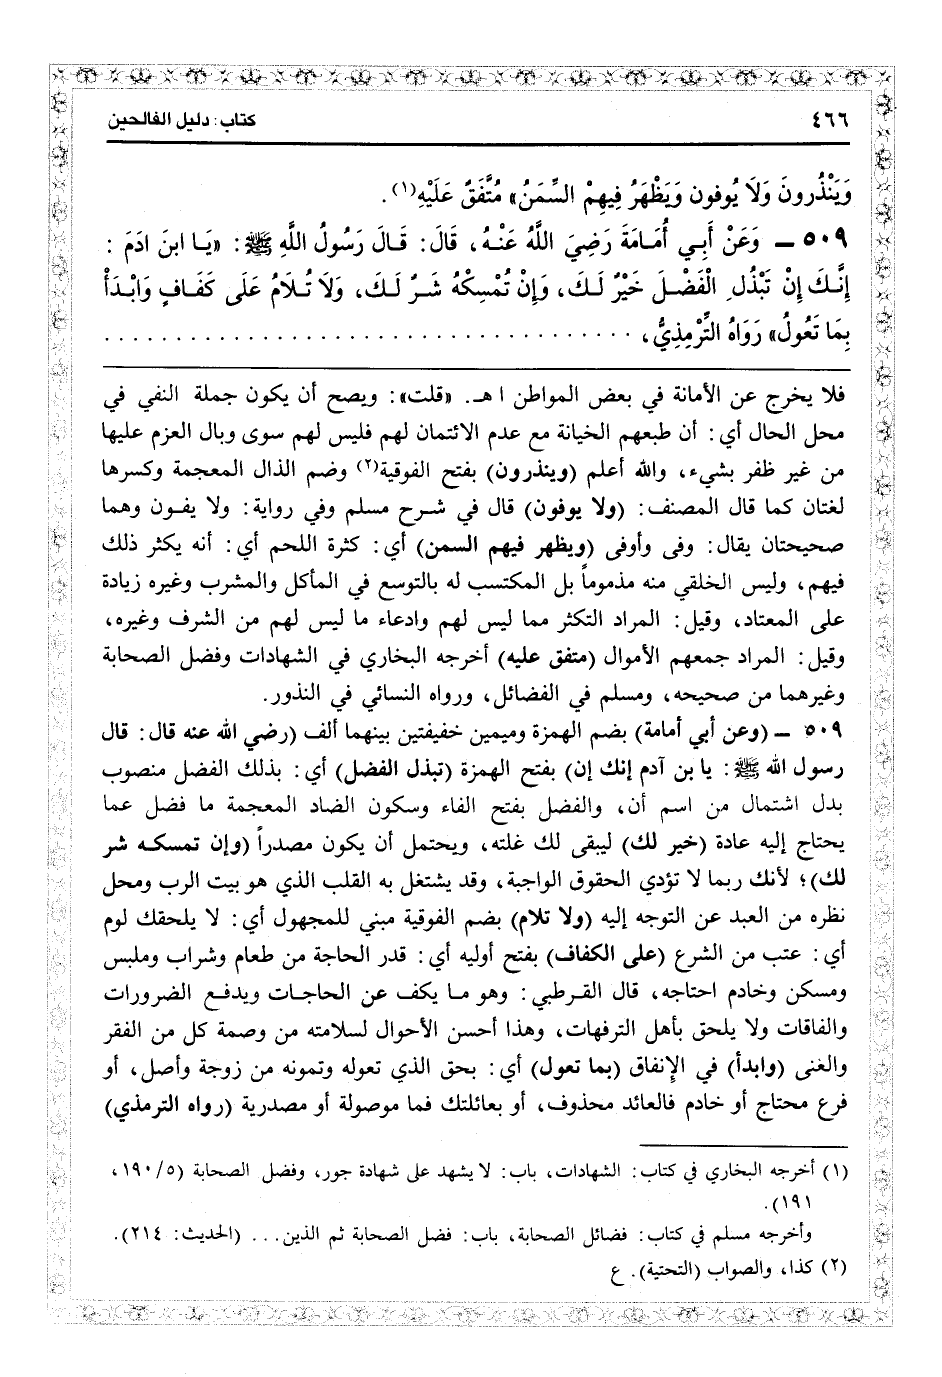 ٤٦٦
كتاب: دليل الفالحين
وَيَنْذُرونَ وَلَا يُوفون وَيَظْهَرُ فِيهِمْ السِّمَنُ» مُتَّفَقٌ عَلَيْهِ(١).
٥٠٩ ـ وَعَنْ أَبِي أُمَامَةَ رَضِيَ اللَّهُ عَنْهُ، قَالَ: قَالَ رَسُولُ اللَّهِ ﷺ: «يَا ابنَ ادَمَ:
إِنَّكَ إِنْ تَبْذُلِ الْفَضْلَ خَيْرٌ لَكَ، وَإِنْ تُمْسِكْهُ شَرٌ لَكَ، وَلَا تُلَامُ عَلَى كَفَافٍ وَابْدَأْ
بِمَا تَعُولُ» رَوَاهُ التِّرْمِذِيُّ، . . . . . . . . . . . . . . . . . . . . . . . . . . . . . . . . . . . . .
فلا يخرج عن الأمانة في بعض المواطن اهـ. «قلت»: ويصح أن يكون جملة النفي في
محل الحال أي: أن طبعهم الخيانة مع عدم الائتمان لهم فليس لهم سوى وبال العزم عليها
من غير ظفر بشيء، والله أعلم (وينذرون) بفتح الفوقية(٢) وضم الذال المعجمة وكسرها
لغتان كما قال المصنف: (ولا يوفون) قال في شرح مسلم وفي رواية: ولا يفون وهما
صحيحتان يقال: وفى وأوفى (ويظهر فيهم السمن) أي: كثرة اللحم أي: أنه يكثر ذلك
فيهم، وليس الخلقي منه مذموماً بل المكتسب له بالتوسع في المأكل والمشرب وغيره زيادة
على المعتاد، وقيل: المراد التكثر مما ليس لهم وادعاء ما ليس لهم من الشرف وغيره،
وقيل: المراد جمعهم الأموال (متفق عليه) أخرجه البخاري في الشهادات وفضل الصحابة
وغيرهما من صحيحه، ومسلم في الفضائل، ورواه النسائي في النذور.
٥٠٩ ـ (وعن أبي أمامة) بضم الهمزة وميمين خفيفتين بينهما ألف (رضي الله عنه قال: قال
رسول الله ﷺ: يا بن آدم إنك إن) بفتح الهمزة (تبذل الفضل) أي: بذلك الفضل منصوب
بدل اشتمال من اسم أن، والفضل بفتح الفاء وسكون الضاد المعجمة ما فضل عما
يحتاج إليه عادة (خير لك) ليبقى لك غلته، ويحتمل أن يكون مصدراً (وإن تمسكه شر
لك)؛ لأنك ربما لا تؤدي الحقوق الواجبة، وقد يشتغل به القلب الذي هو بيت الرب ومحل
نظره من العبد عن التوجه إليه (ولا تلام) بضم الفوقية مبني للمجهول أي: لا يلحقك لوم
أي: عتب من الشرع (على الكفاف) بفتح أوليه أي: قدر الحاجة من طعام وشراب وملبس
ومسكن وخادم احتاجه، قال القرطبي: وهو ما يكف عن الحاجات ويدفع الضرورات
والفاقات ولا يلحق بأهل الترفهات، وهذا أحسن الأحوال لسلامته من وصمة كل من الفقر
والغنى (وابدأ) في الإنفاق (بما تعول) أي: بحق الذي تعوله وتمونه من زوجة وأصل، أو
فرع محتاج أو خادم فالعائد محذوف، أو بعائلتك فما موصولة أو مصدرية (رواه الترمذي)
(١) أخرجه البخاري في كتاب: الشهادات، باب: لا يشهد على شهادة جور، وفضل الصحابة (٥/ ١٩٠،
١٩١).
وأخرجه مسلم في كتاب: فضائل الصحابة، باب: فضل الصحابة ثم الذين... (الحديث: ٢١٤).
(٢) كذا، والصواب (التحتية). ع